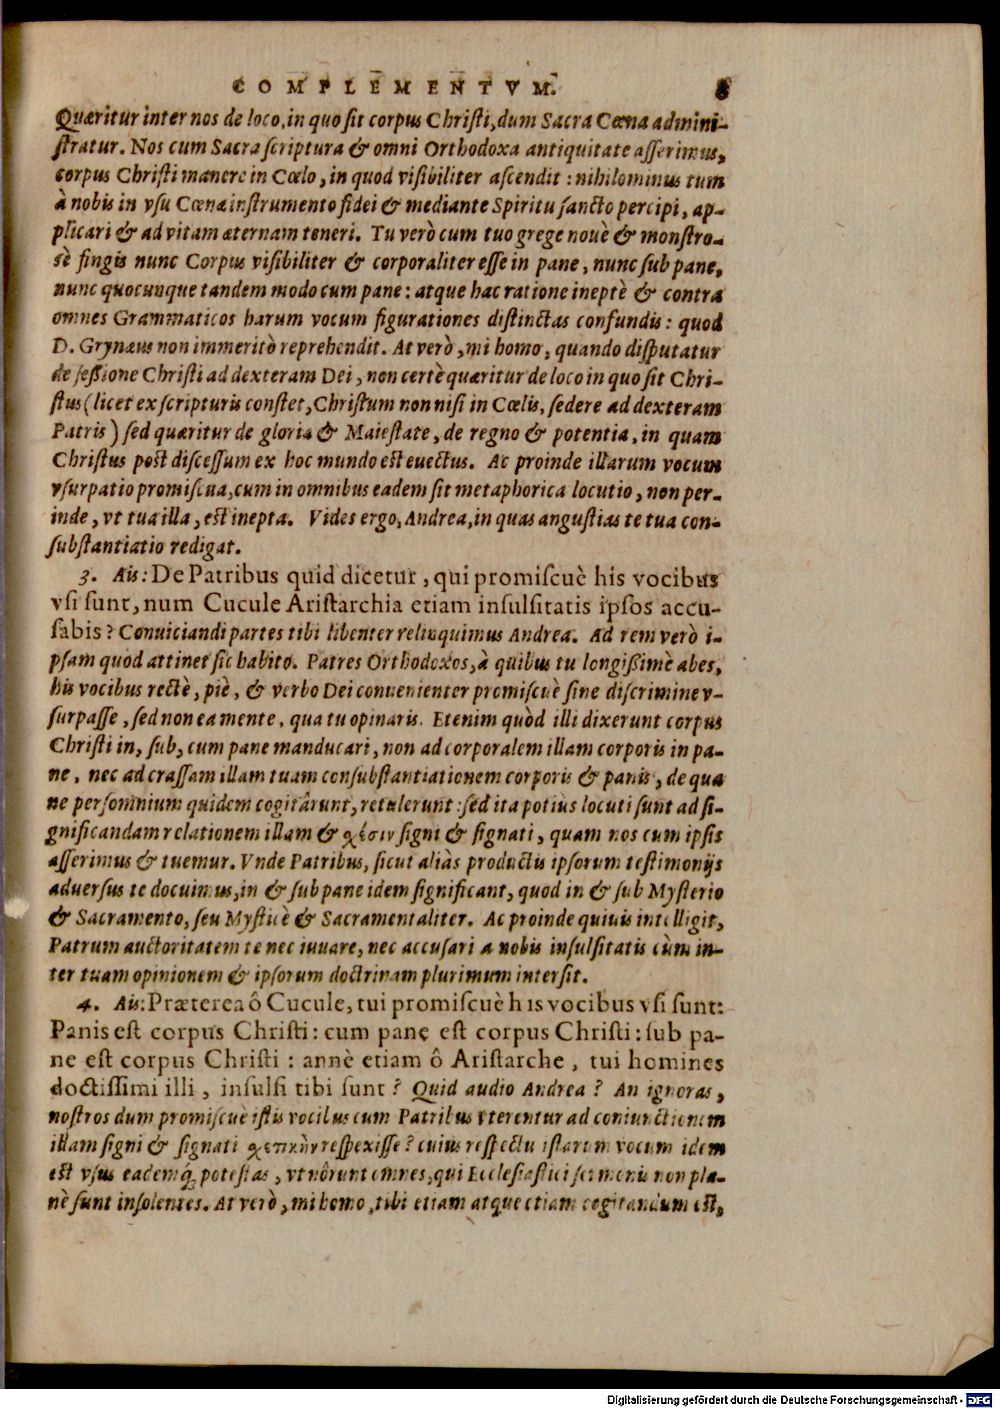 COMPLEMENTVM. 8
Quæritur inter nos de loco, in quo sit corpus Christi, dum Sacra Cœna admini-
stratur. Nos cum Sacra scriptura & omni Orthodoxa antiquitate asserimus,
corpus Christi manere in Cœlo, in quod visibiliter ascendit: nihilominus tum
à nobis in vsu Cœnæ instrumento fidei & mediante Spiritu sancto percipi, ap-
plicari & ad vitam æternam teneri. Tu verò cum tuo grege nouè & monstro-
sè fingis nunc Corpus visibiliter & corporaliter esse in pane, nunc sub pane,
nunc quocunque tandem modo cum pane: atque hac ratione ineptè & contra
omnes Grammaticos harum vocum figurationes distinctas confundis: quod
D. Grynæus non immeritò reprehendit. At verò, mi homo, quando disputatur
de sessione Christi ad dexteram Dei, non certè quæritur de loco in quo sit Chri-
stus (licet ex scripturis constet, Christum non nisi in Cœlis, sedere ad dexteram
Patris) sed quæritur de gloria & Maiestate, de regno & potentia, in quam
Christus post discessum ex hoc mundo est euectus. Ac proinde illarum vocum
vsurpatio promiscua, cum in omnibus eadem sit metaphorica locutio, non per-
inde, vt tua illa, est inepta. Vides ergo, Andrea, in quas angustias te tua con-
substantiatio redigat.
3. Ais: De Patribus quid dicetur, qui promiscuè his vocibus
vsi sunt, num Cucule Aristarchia etiam insulsitatis ipsos accu-
sabis? Conuiciandi partes tibi libenter relinquimus Andrea. Ad rem verò i-
psam quod attinet sic habito. Patres Orthodoxos, à quibus tu longissimè abes,
his vocibus rectè, piè, & verbo Dei conuenienter promiscuè sine discrimine v-
surpasse, sed non ea mente, qua tu opinaris. Etenim quòd illi dixerunt corpus
Christi in, sub, cum pane manducari, non ad corporalem illam corporis in pa-
ne, nec ad crassam illam tuam consubstantiationem corporis & panis, de qua
ne per somnium quidem cogitârunt, retulerunt: sed ita potiùs locuti sunt ad si-
gnificandam relationem illam & σχέσιν signi & signati, quam nos cum ipsis
asserimus & tuemur. Vnde Patribus, sicut aliàs productis ipsorum testimonijs
aduersus te docuimus, in & sub pane idem significant, quod in & sub Mysterio
& Sacramento, seu Mysticè & Sacramentaliter. Ac proinde quiuis intelligit,
Patrum auctoritatem te nec iuuare, nec accusari a nobis insulsitatis cùm in-
ter tuam opinionem & ipsorum doctrinam plurimum intersit.
4. Ais: Præterea ô Cucule, tui promiscuè his vocibus vsi sunt:
Panis est corpus Christi: cum pane est corpus Christi: sub pa-
ne est corpus Christi: annè etiam ô Aristarche, tui homines
doctissimi illi, insulsi tibi sunt? Quid audio Andrea? An ignoras,
nostros dum promiscuè istis vocibus cum Patribus vterentur ad coniunctionem
illam signi & signati σχετικὴν respexisse? cuius respectu istarum vocum idem
est vsus eademq́; potestas, vt nôrunt omnes, qui Ecclesiastici sermonis non pla-
nè sunt insolentes. At verò, mi homo, tibi etiam atque etiam cogitandum est,
Digitalisierung gefördert durch die Deutsche Forschungsgemeinschaft - DFG